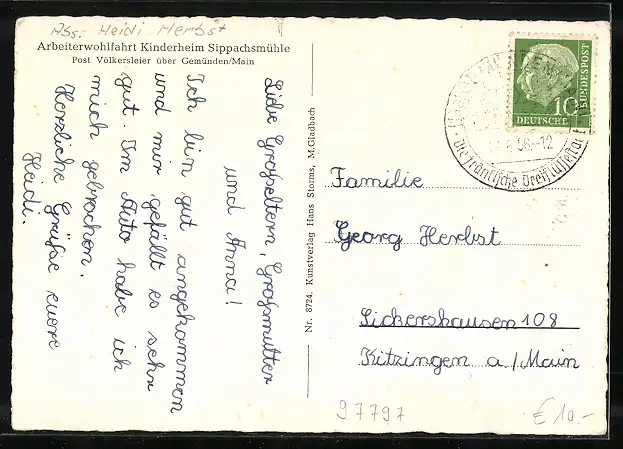 Abs: Heidi Herbst
Arbeiterwohlfahrt Kinderheim Sippachsmühle
Post Völkersleier über Gemünden/Main
Liebe Großeltern, Großmutter
und Anna!
Ich bin gut angekommen
und mir gefällt es sehr
gut. Im Auto habe ich
mich gebrochen.
Herzliche Grüße euere
Heidi.
Nr. 8724. Kunstverlag Hans Storms, M.Gladbach
10
DEUTSCHE
BUNDESPOST
56.-12
Die fränkische Dreiflüssestadt
Familie
Georg Herbst
Sickershausen 108
Kitzingen a/Main
97797
€ 10.-